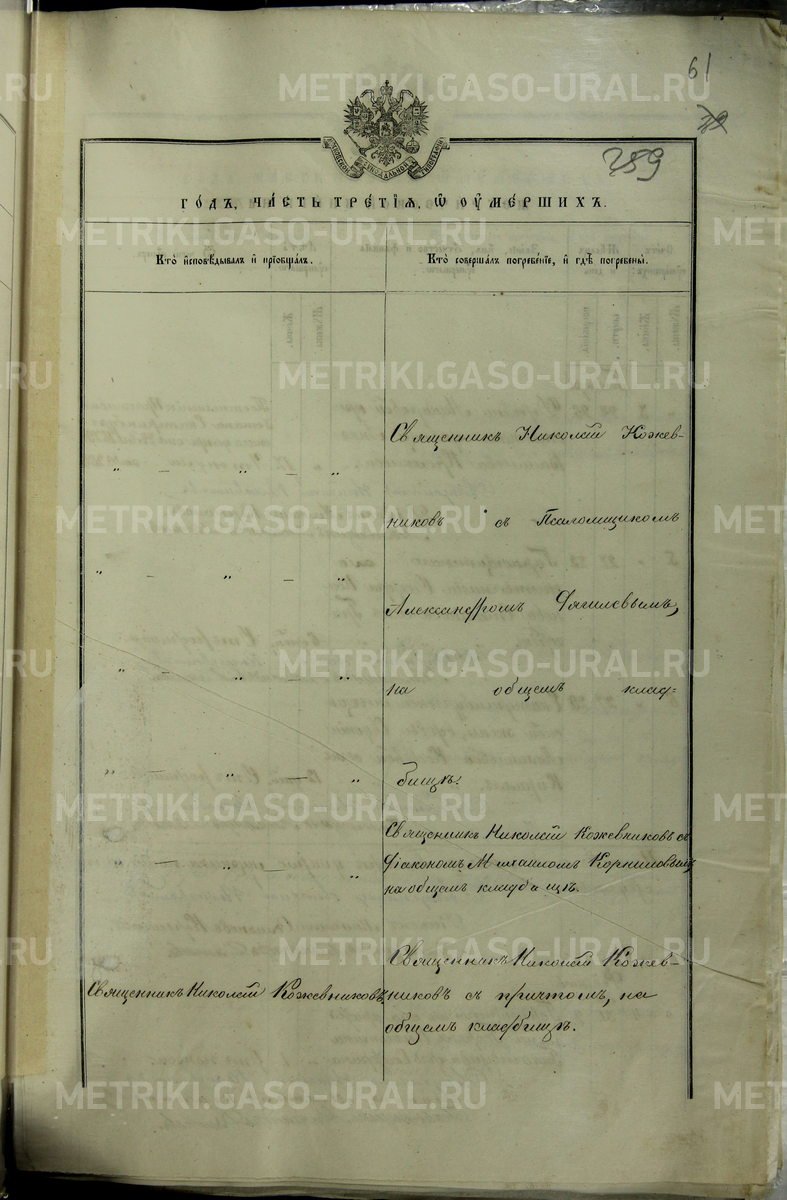 61
759
МОСКОВСКОЙ СѴНОДАЛЬНОЙ ТИПОГРАФІИ
ГО́ДЪ, ЧА́СТЬ ТРЕ́ТІѦ, Ѡ҆ ОУ҆МЕ́РШИХЪ.
Кто̀ и҆сповѣ́дывалъ и҆ прїобща́лъ.
Кто̀ соверша́лъ погребе́нїе, и҆ гдѣ̀ погребены̀.
Священникъ Николай Кожев-
" — " — "
никовъ съ Псаломщикомъ
" — " — "
Александромъ Фягилевымъ,
" — " — "
на общемъ клад=
" — " — "
бищѣ.
Священникъ Николай Кожевниковъ съ
діакономъ Михаиломъ Корниловымъ
" — " — "
на общемъ кладбищѣ.
Священникъ Николай Кожев-
Священникъ Николай Кожевниковъ
никовъ съ причтомъ, на
общемъ кладбищѣ.
METRIKI.GASO-URAL.RU